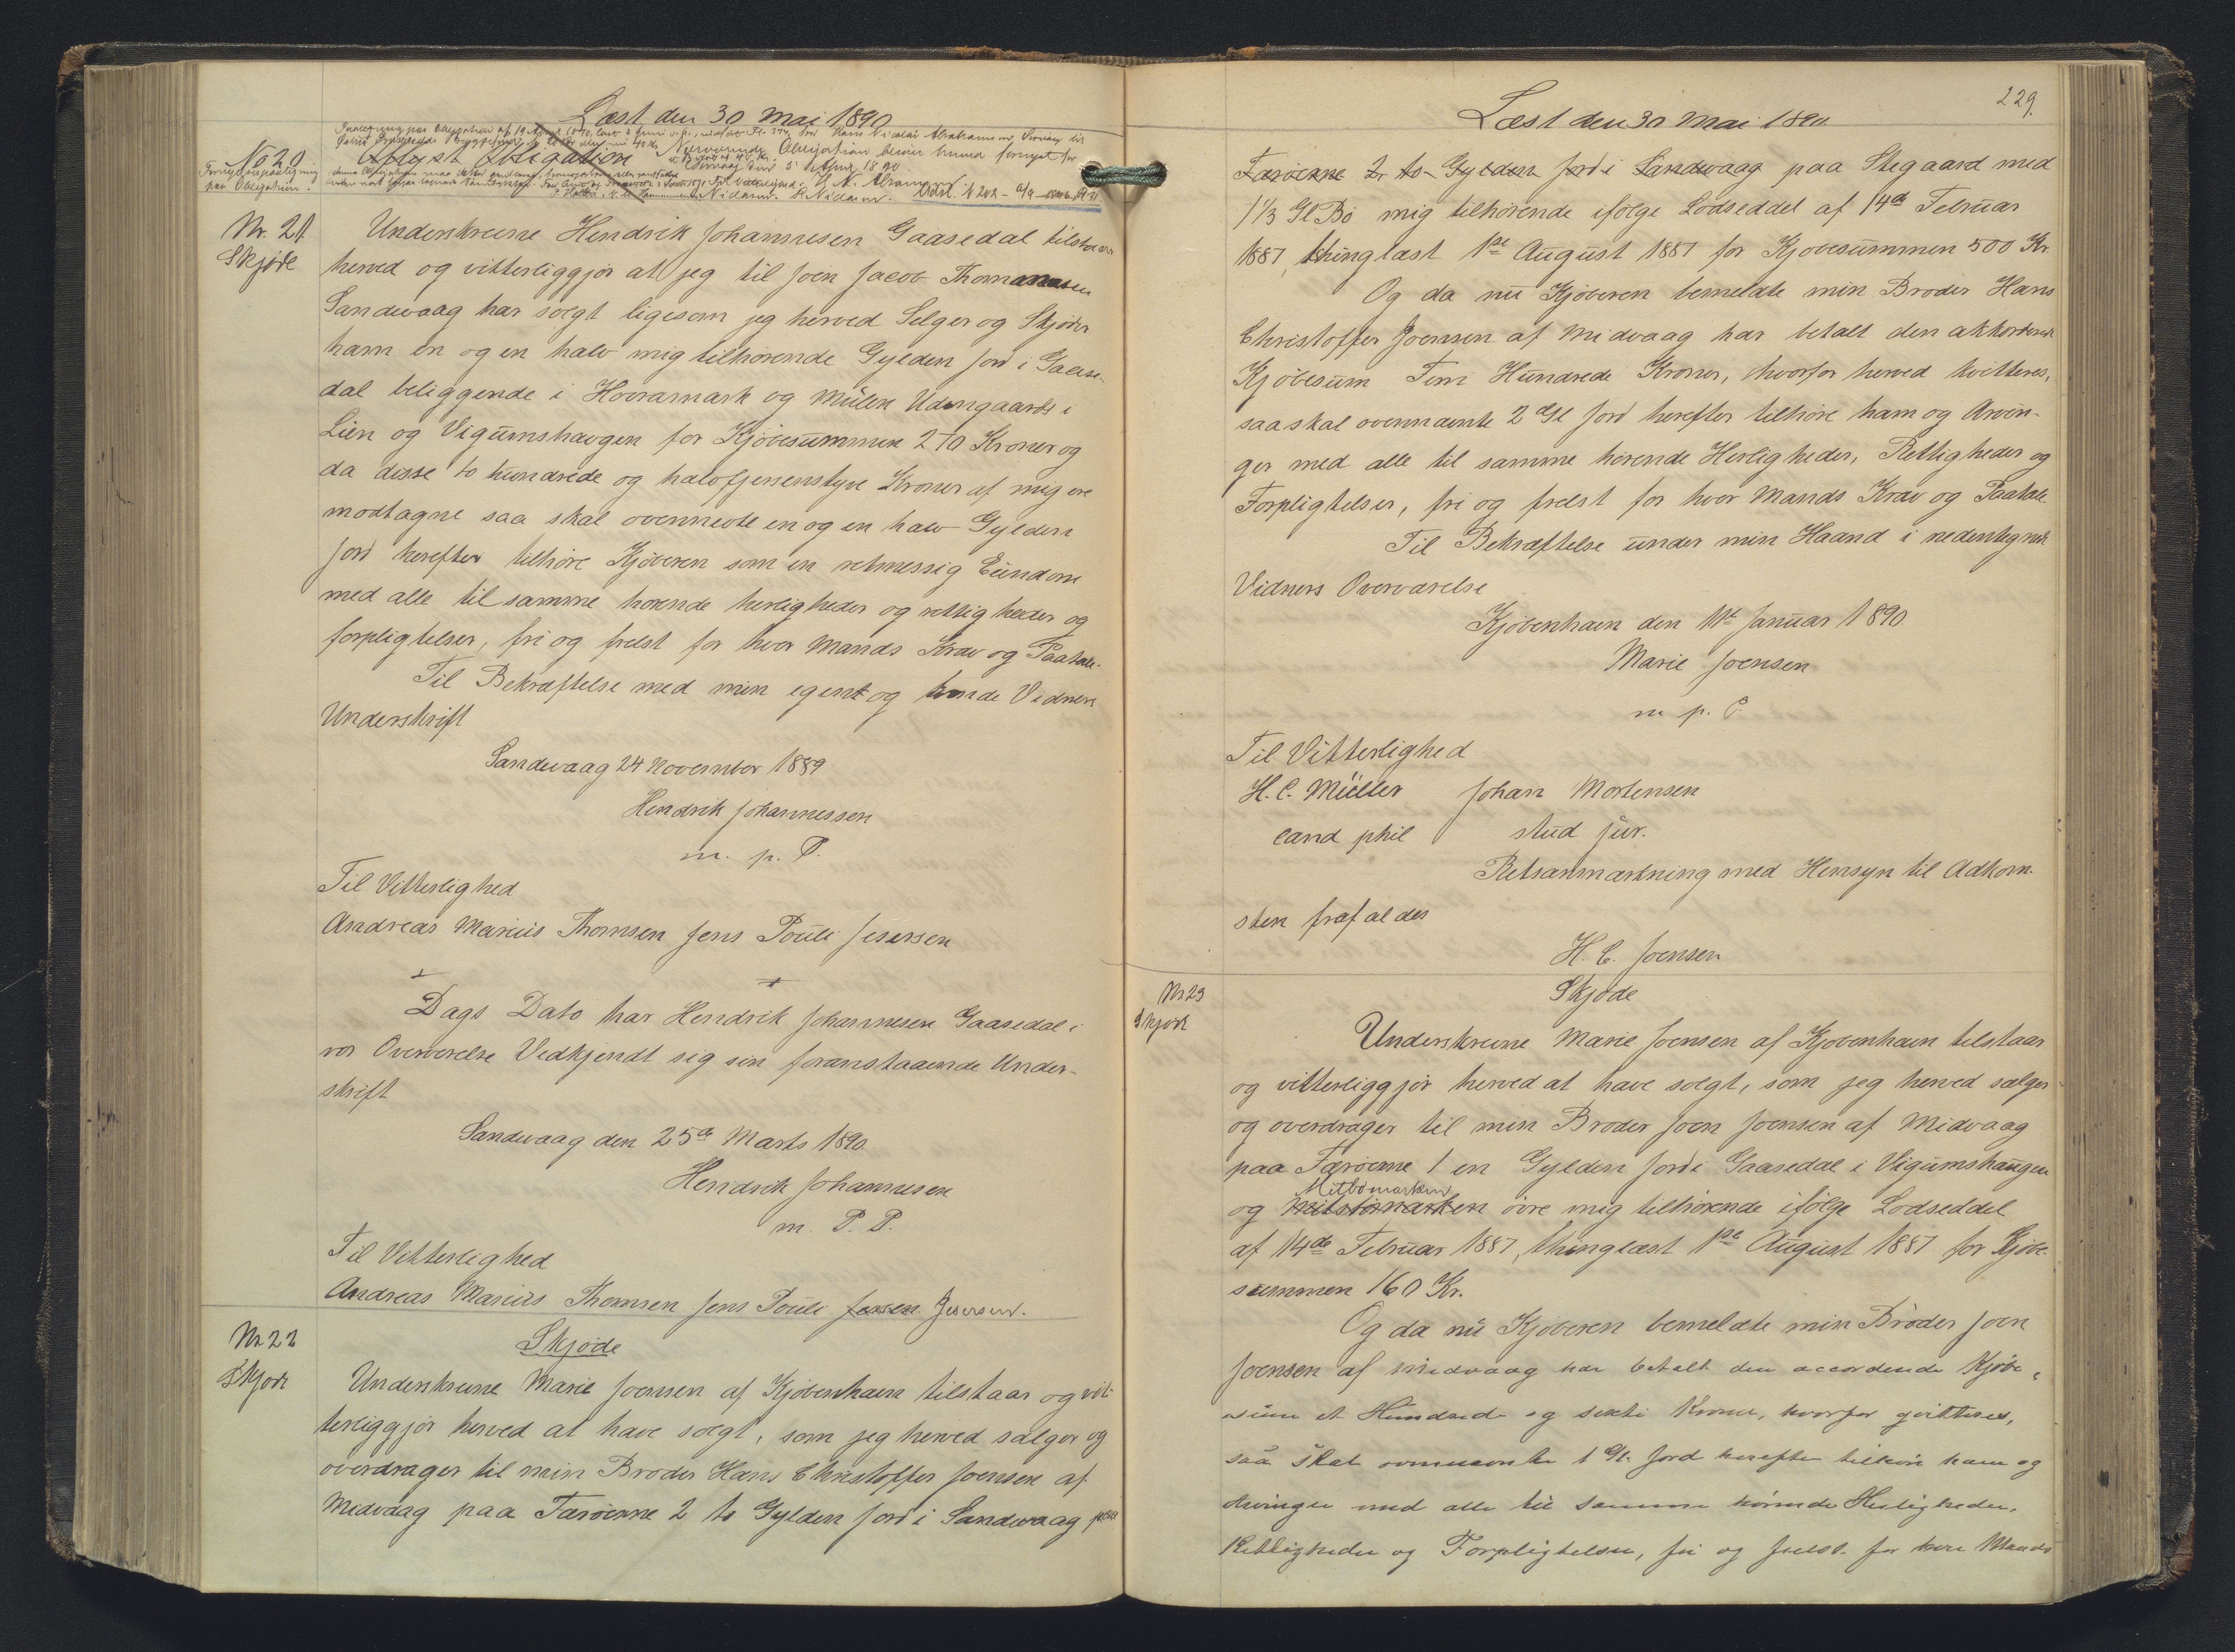 Læst den 30 Mai 1890
No 20
Aflyst Obligation
Nærværende Obligation bliver herved fornyet for
paa Obligation.
Nr. 21
Skjøde
Underskrevne Hendrik Johannesen Gaasedal tilstaaer
herved og vitterliggjør at jeg til Joen Jacob Thomassen
Sandevaag har solgt ligesom jeg herved Selger og Skjøder
ham en og en halv mig tilhørende Gylden Jord i Gaase-
dal beliggende i Hovramark og Mülen Udengaards i
Lien og Vigumshavgen for Kjøbesummen 270 Kroner og
da disse to hundrede og halvfjersenstyve Kroner af mig ere
modtagne saa skal ovennevte en og en halv Gylden
Jord herefter tilhøre Kjøberen som en retmessig Eiendom
med alle til samme hørende herligheder og rettigheder og
forpligtelser, fri og frelst for hver Mands Krav og Paatale.
Til Bekræftelse med min egen og tvende Vidners
Underskrift
Sandevaag 24 November 1889
Hendrik Johannessen
m. p. P.
Til Vitterlighed
Andreas Marius Thomsen Jens Pouli Jesersen
Dags Dato har Hendrik Johannesen Gaasedal i
vor Overværelse Vedkjendt sig sin foranstaaende Under-
skrift
Sandevaag den 25de Marts 1890
Hendrik Johannesen
m. P. P.
Til Vitterlighed
Andreas Marius Thomsen Jens Pouli Jensen Jesersen.
Nr 22
Skjøde
Skjøde
Underskrevne Marie Joensen af Kjøbenhavn tilstaar og vit-
terliggjør herved at have solgt, som jeg herved sælger og
overdrager til min Broder Hans Christoffer Joensen af
Midvaag paa Færøerne 2 to Gylden Jord i Sandevaag paa
229.
Læst den 30 Mai 1890
Færøerne 2 to Gylden Jord i Sandevaag paa Stegaard med
1 1/3 Gl Bø mig tilhørende ifølge Lodseddel af 14de Februar
1887, thinglæst 1ste August 1887 for Kjøbesummen 500 Kr.
Og da nu Kjøberen bemeldte min Broder Hans
Christoffer Joensen af Midvaag har betalt den akkorderede
Kjøbesum Fem Hundrede Kroner, hvorfor herved kvitteres,
saa skal ovennævnte 2 Gl Jord herefter tilhøre ham og Arvin-
ger med alle til samme hørende Herligheder, Rettigheder og
Forpligtelser, fri og frelst for hver Mands Krav og Paatale.
Til Bekræftelse under min Haand i nedentegnede
Vidners Overværelse
Kjøbenhavn den 11te Januar 1890.
Marie Joensen
m. p. P.
Til Vitterlighed
H. C. Müller Johan Mortensen
cand phil stud jur.
Retsanmærkning med Hensyn til Adkom-
sten frafaldes
H. C. Joensen
Nr 23
Skjøde
Skjøde
Underskrevne Marie Joensen af Kjøbenhavn tilstaar
og vitterliggjør herved at have solgt, som jeg herved sælger
og overdrager til min Broder Joen Joensen af Midvaag
paa Færøerne 1 en Gylden Jord i Gaasedal i Vigumshaugen
Mitbømarken
og øvre mig tilhørende ifølge Lodseddel
af 14de Februar 1887, thinglæst 1ste August 1887 for Kjøbe-
summen 160 Kr.
Og da nu Kjøberen bemeldte min Broder Joen
Joensen af Midvaag har betalt den accorderede Kjøbe-
sum et Hundrede og sexti Kroner, hvorfor qvitteres,
saa skal ovennævnte 1 Gl. Jord herefter tilhøre ham og
Arvinger med alle til samme hørende Herligheder,
Rettigheder og Forpligtelser, fri og frelst for hver Mands